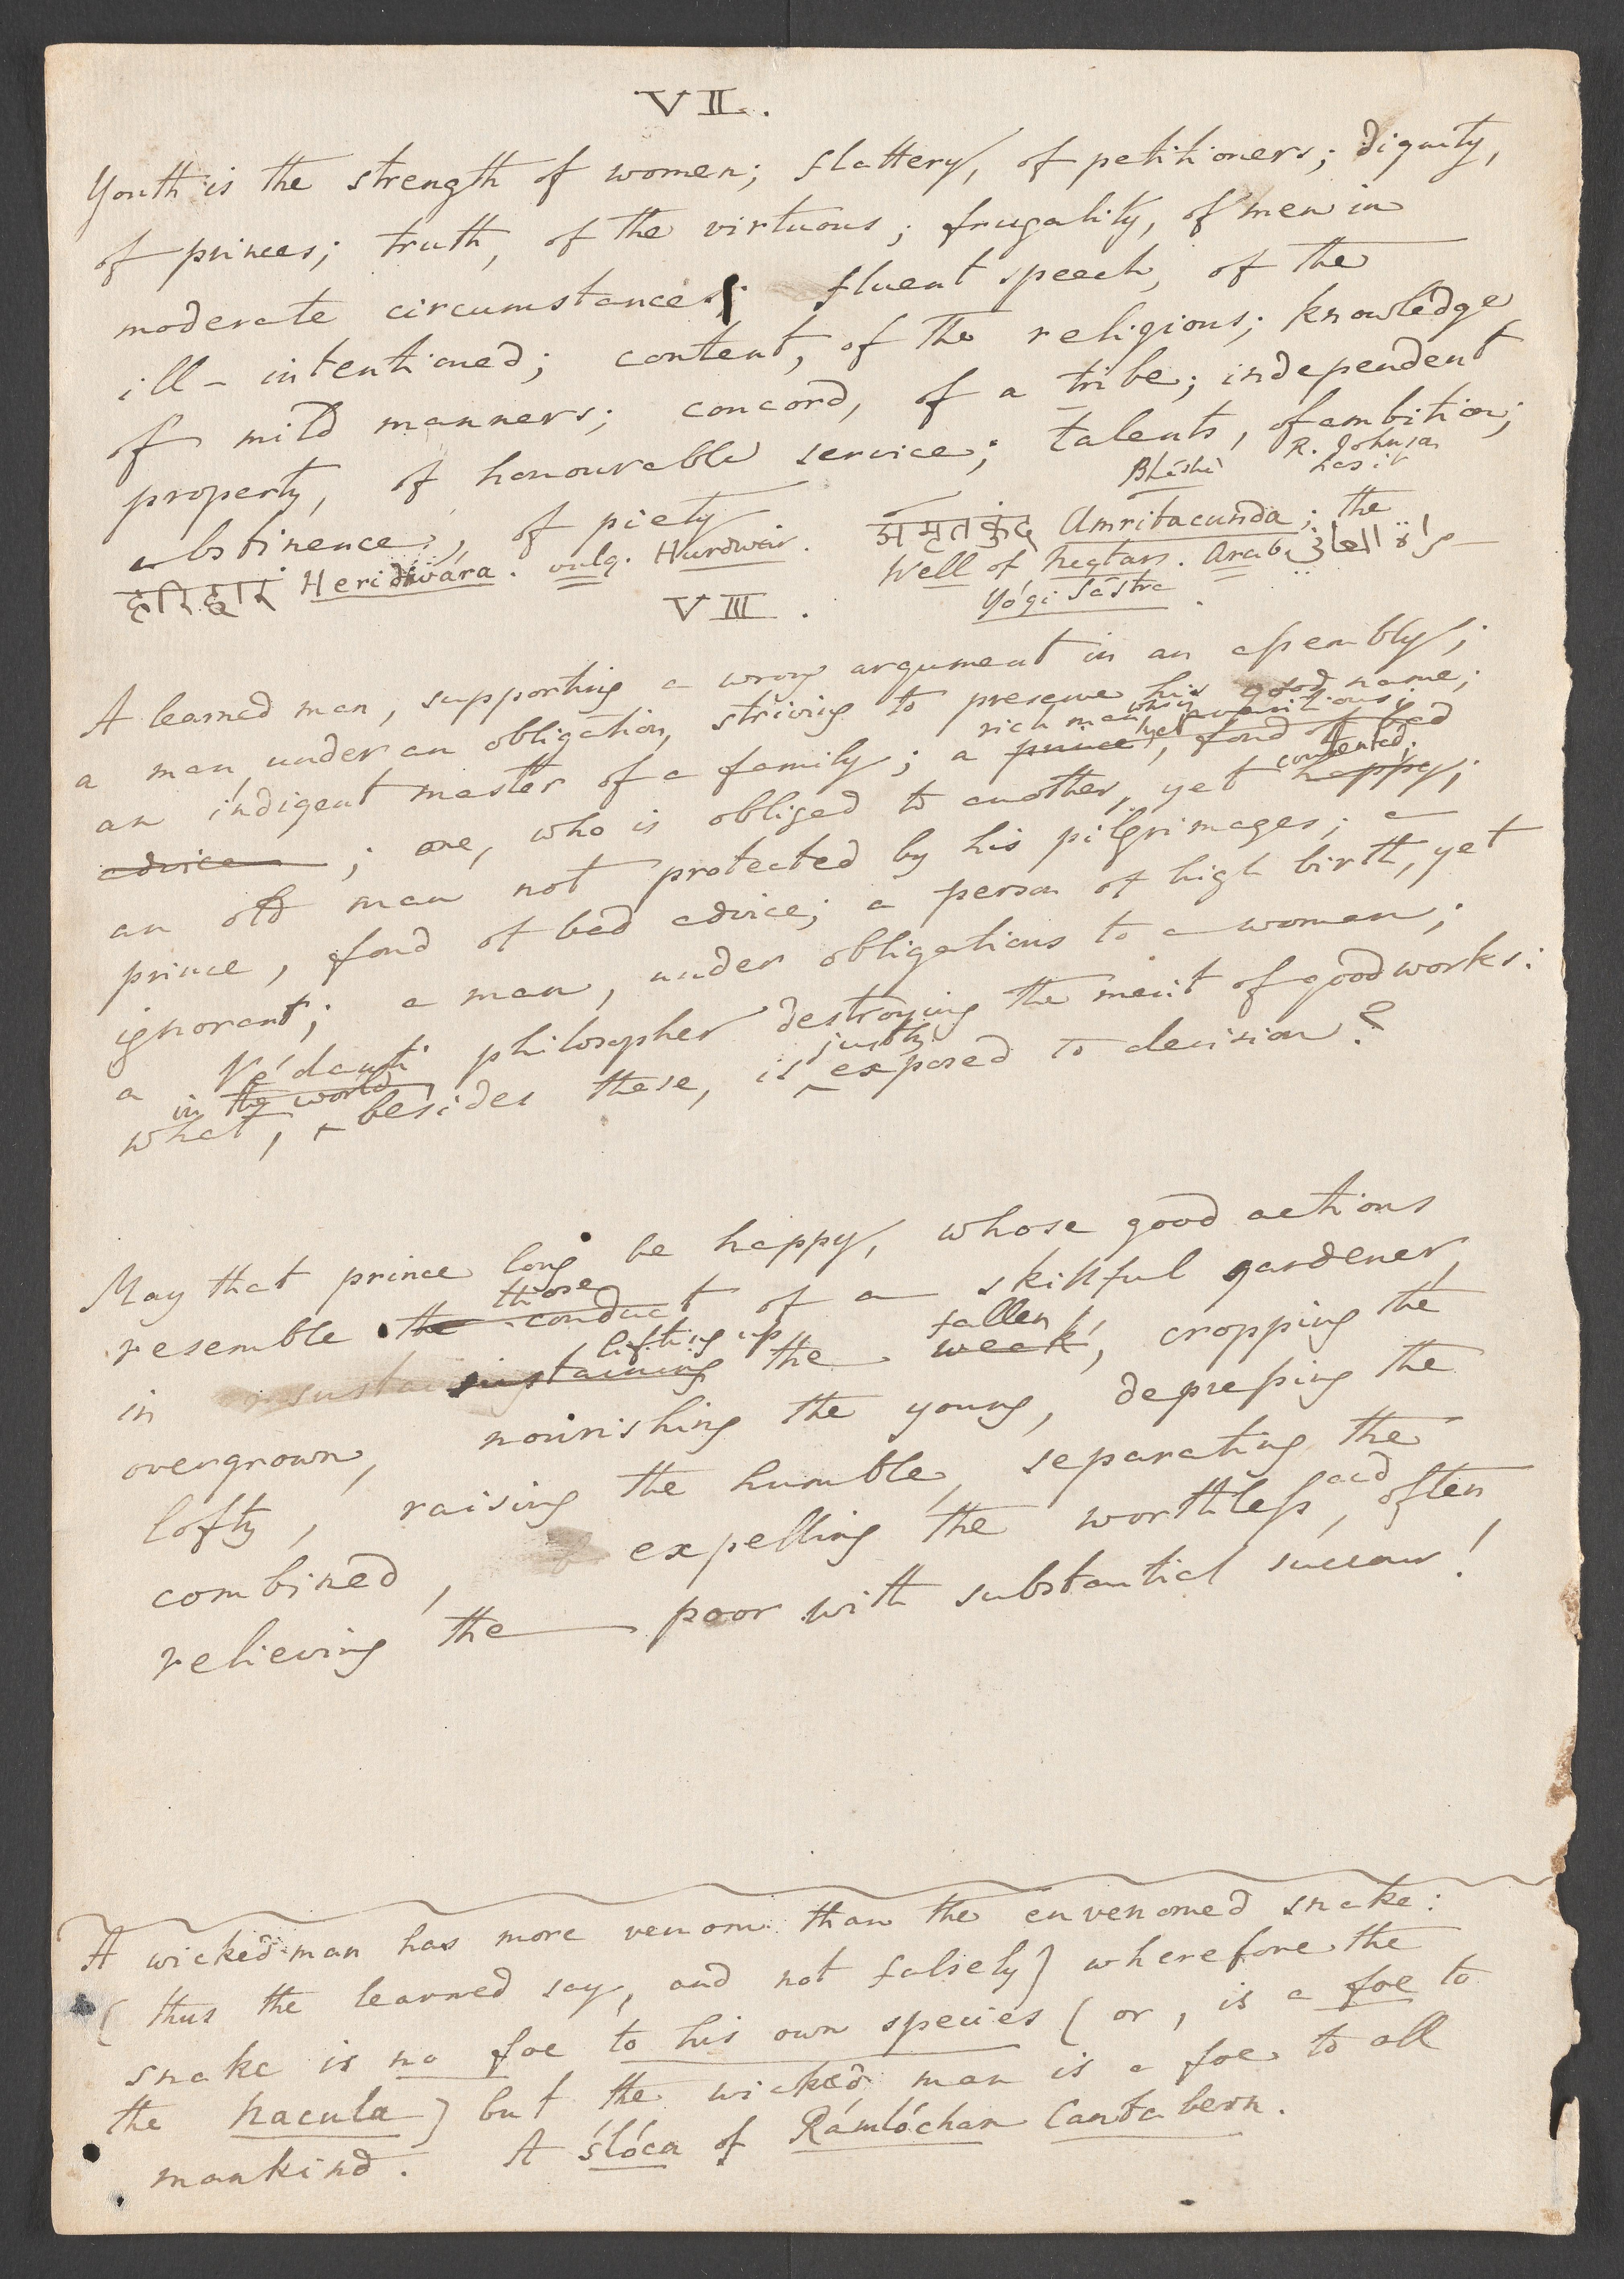 VII.
Youth is the strength of women; flattery, of petitioners; dignity,
of princes; truth, of the virtuous; frugality, of men in
moderate circumstances; fluent speech, of the
ill-intentioned; content, of the religious; knowledge
of mild manners; concord, of a tribe; independent
property, of honourable service; talents, of ambition;
abstinence, of piety
Bháshà R. Johnson has it
हरिद्वार Heridwára. vulg. Hurdwar.
अमृतकुंद Amritacunda; the
Well of Nectar. Arab. مراة المعاني
Yógi Sástra.
VIII.
A learned man, supporting a wrong argument in an assembly;
a man, under an obligation, striving to preserve his good name;
rich man who is yet avaritious;
an indigent master of a family; a prince, fond of bad
contented;
advice; one, who is obliged to another, yet happy;
an old man not protected by his pilgrimages; a
prince, fond of bad advice; a person of high birth, yet
ignorant; a man, under obligations to a woman;
a Védanti philosopher destroying the merit of good works:
in the world justly
what, besides these, is exposed to decision?
May that prince long be happy, whose good actions
those
resemble the conduct of a skillful gardener,
lifting up fallen
in sustaining the weak, cropping the
overgrown, nourishing the young, depressing the
lofty, raising the humble, separating the
combined, expelling the worthless, and often
relieving the poor with substantial succour!
A wicked man has more venom than the envenomed snake:
(thus the learned say, and not falsely) wherefore the
snake is no foe to his own species (or, is a foe to
the nacula) but the wicked man is a foe to all
mankind. A slóca of Rámlóchan Cantabern.